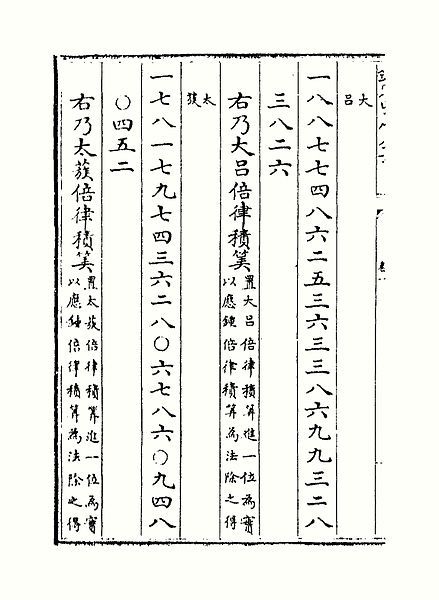 大呂
一八八七七四八六二五三六三三八六九九三二八
三八二六
右乃大呂倍律積筭
置大呂倍律積算進一位為實
以應鍾倍律積算為法除之得
太蔟
一七八一七九七四三六二八〇六七八六〇九四八
〇四五二
右乃太蔟倍律積筭
置太蔟倍律積算進一位為實
以應鍾倍律積算為法除之得